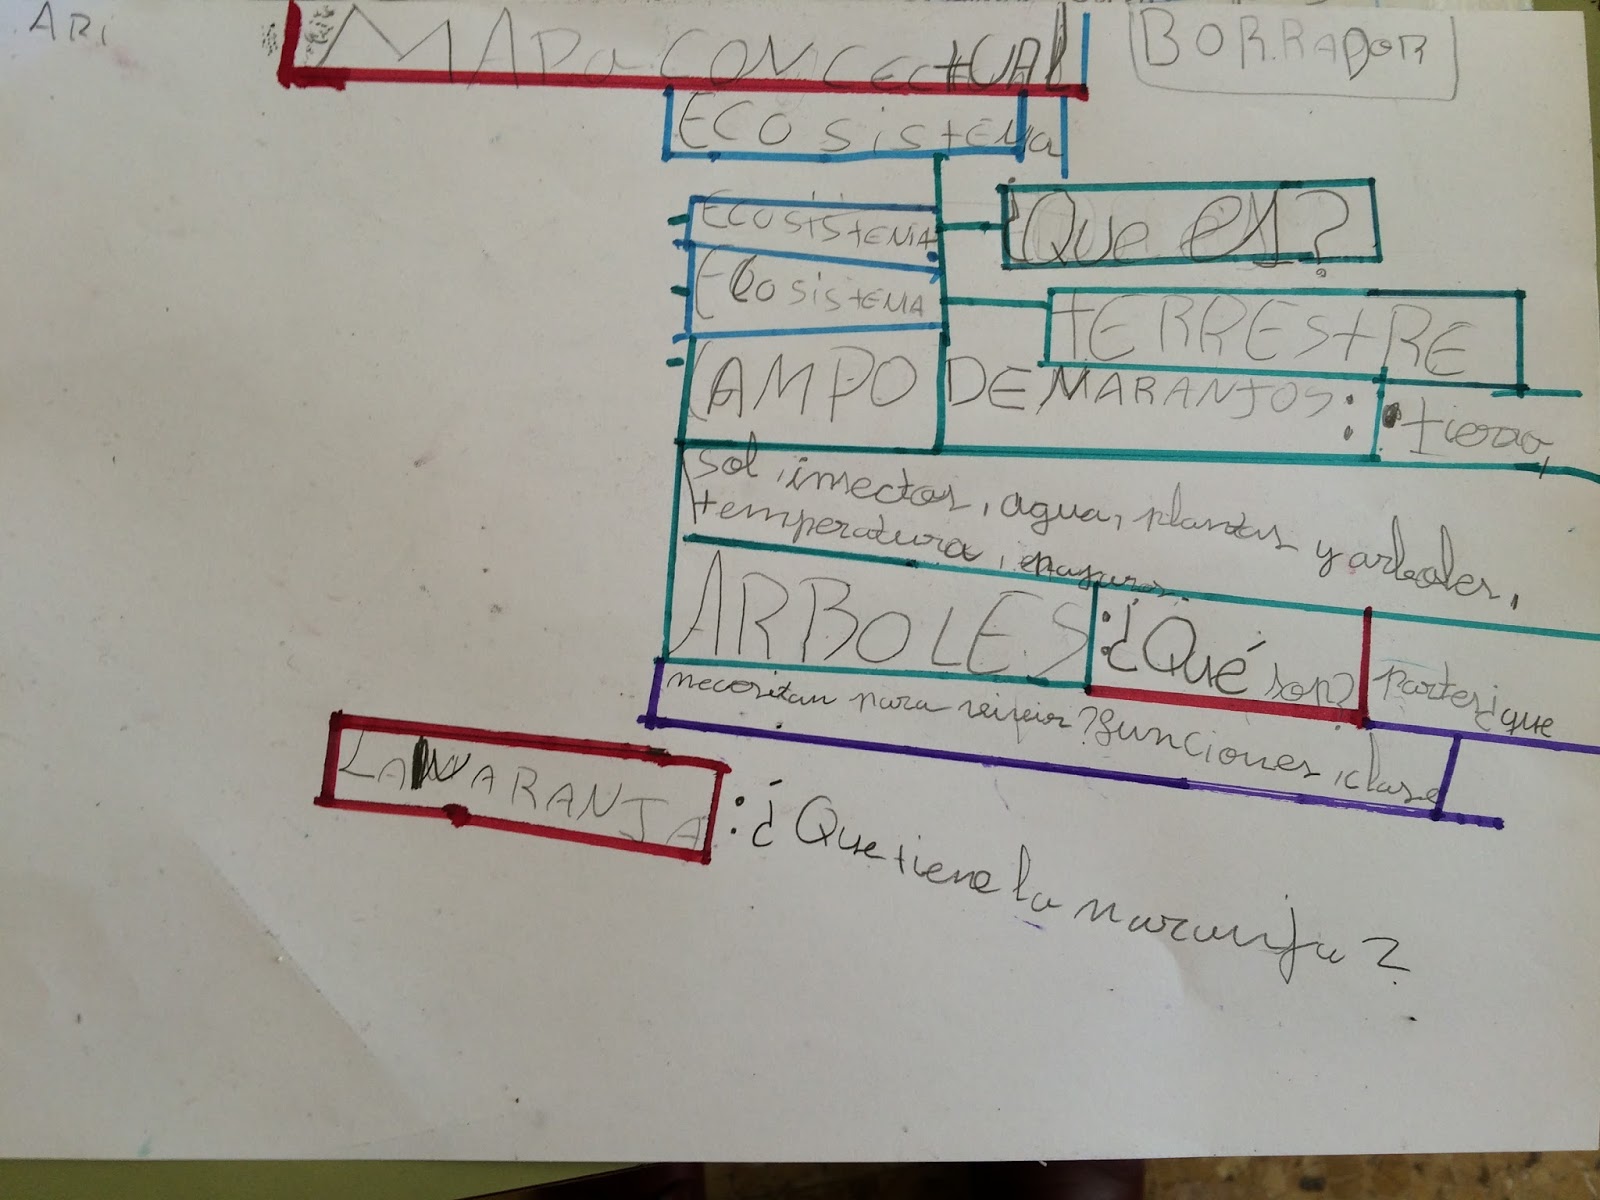 ARi
MAPa CONCECTUAL
BORRADOR
ECOsistEMa
ECOsistEMA
¿Que es?
ECosistEMA
tERREStRE
CAMPO DE NARANJOS: • tierra,
sol, insectos, agua, plantas y arboles,
temperatura, pajaros.
ARBOLES: ¿Qué son? partes ¿que
necesitan para vivir? funciones, clase
LA NARANJA: ¿Que tiene la naranja?